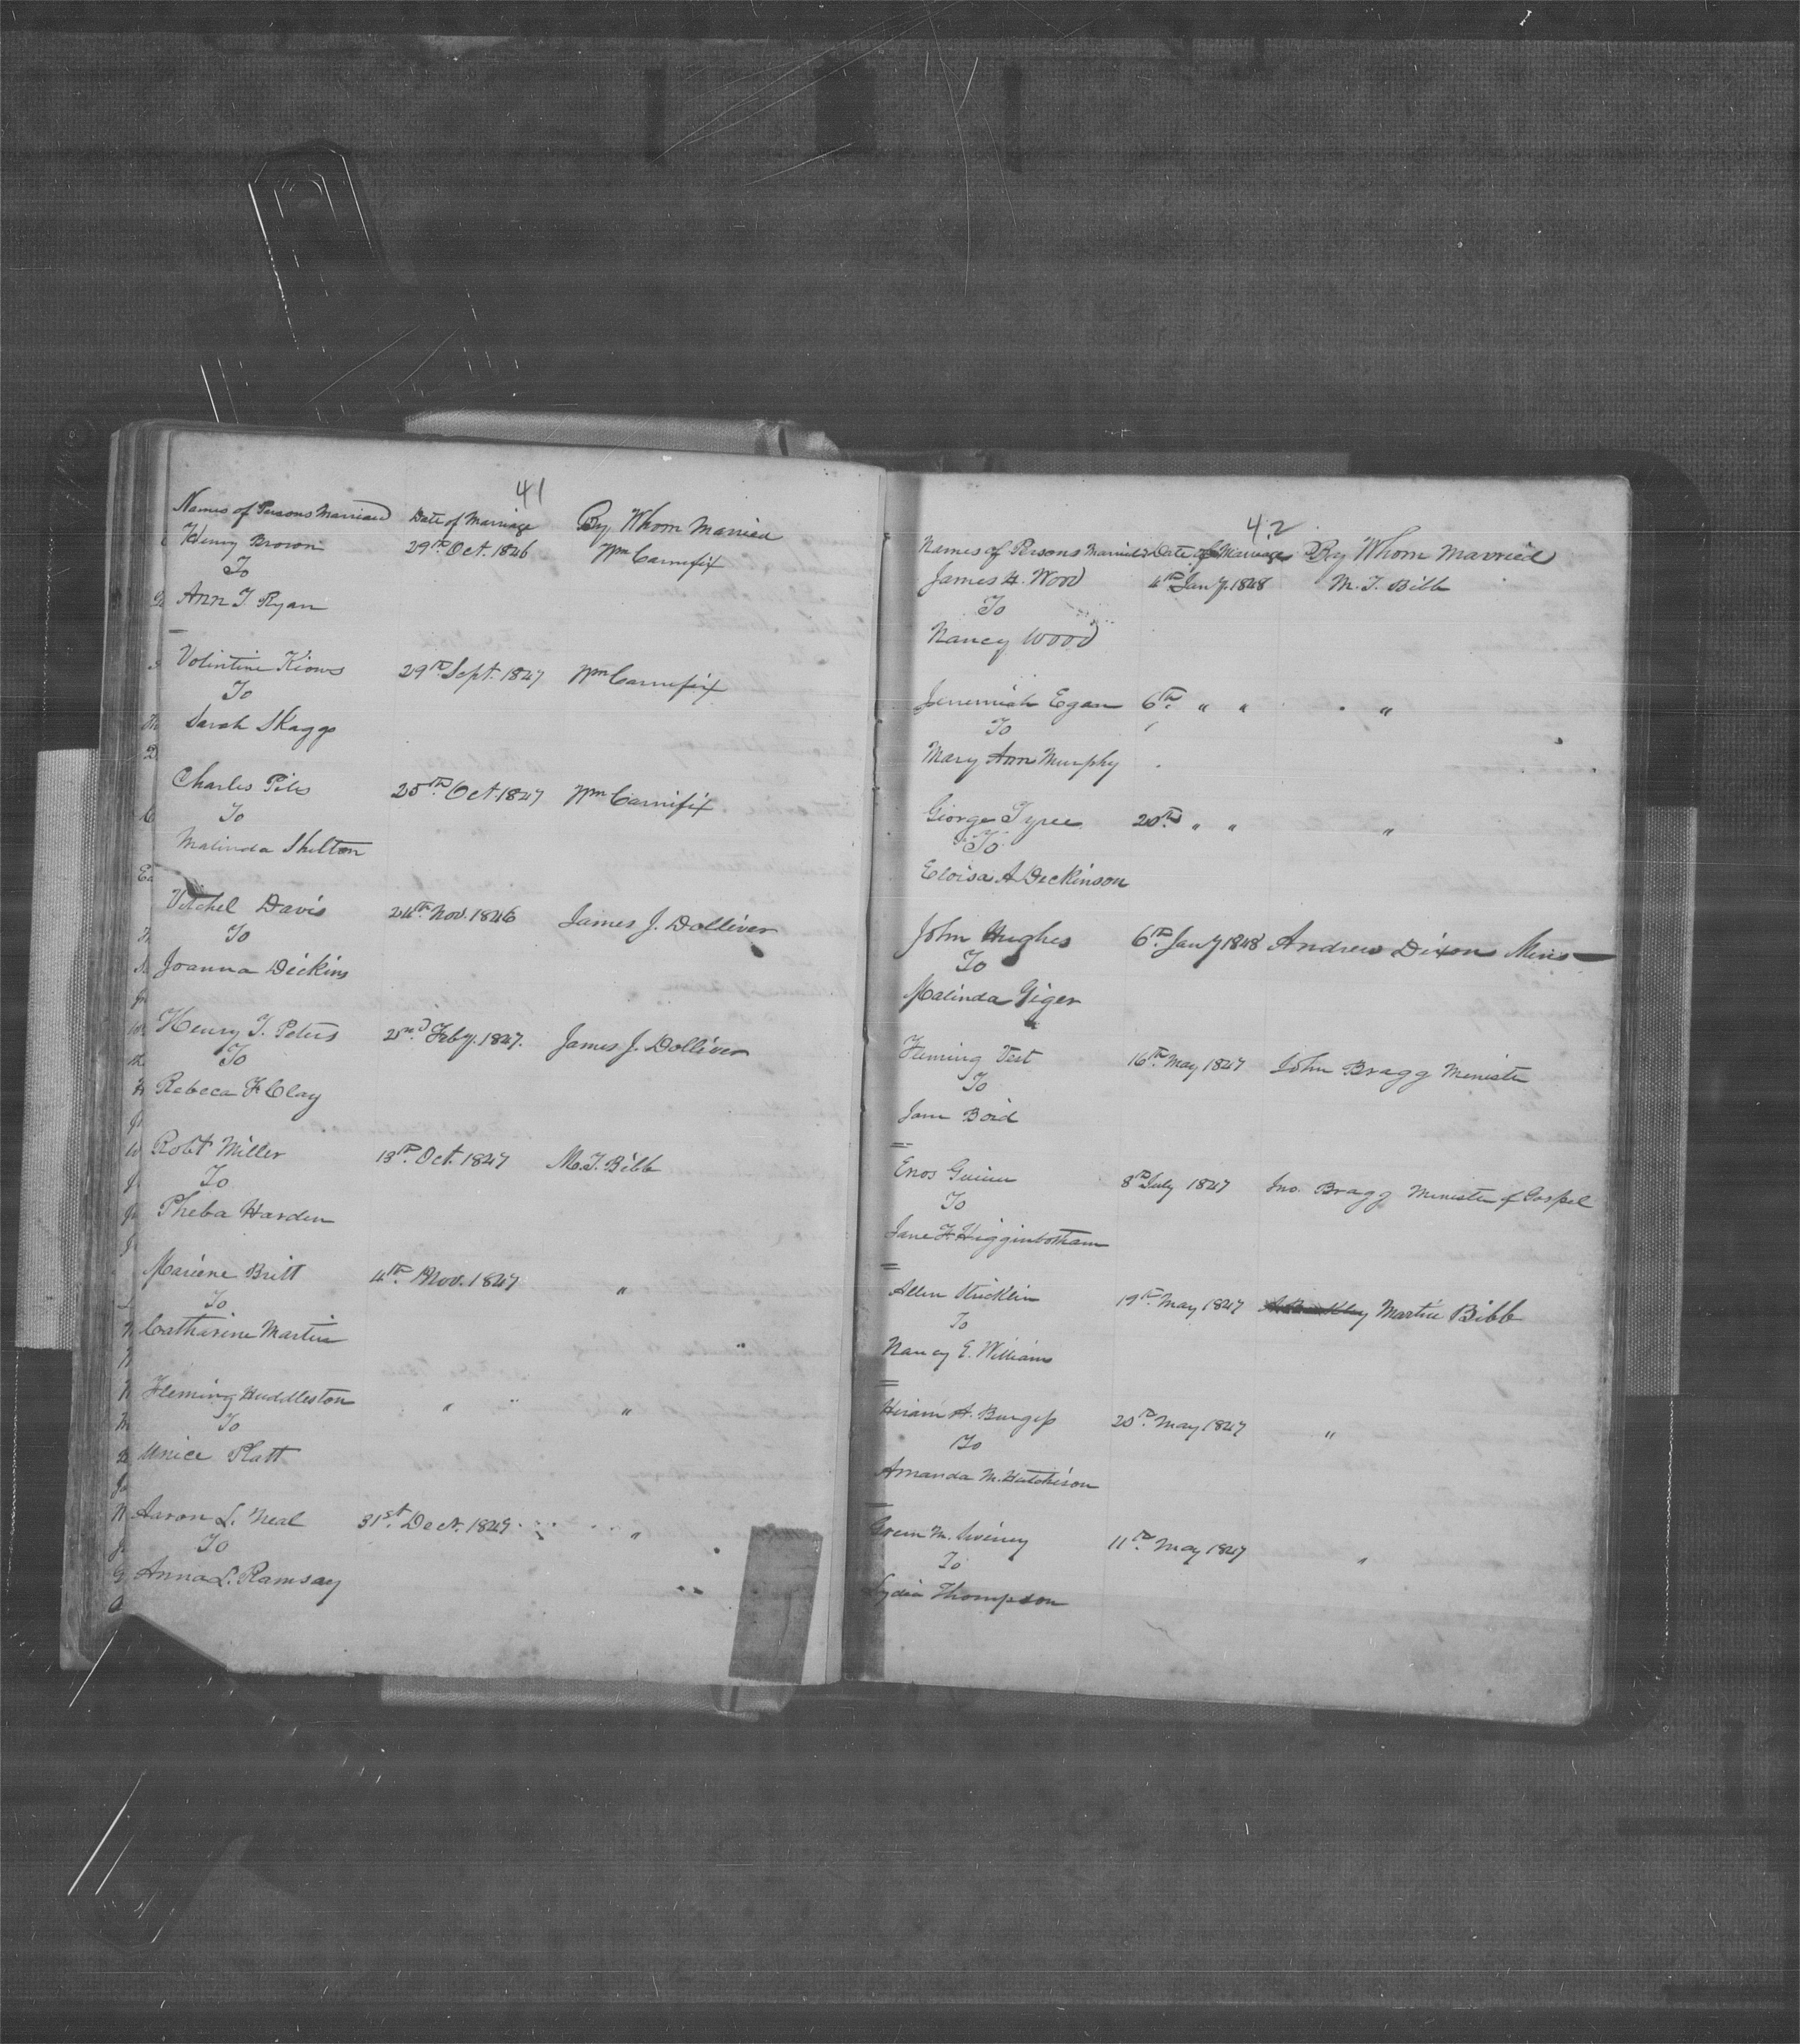 41
Names of Persons Married Date of Marriage By Whom Married
Henry Brown 29th Oct. 1846 Wm Carnifix
To
Ann T Ryan
Volintine Kions 29th Sept. 1847 Wm Carnifix
To
Sarah Skaggs
Charles Piles 25th Oct 1847 Wm Carnifix
To
Malinda Shelton
Vetchel Davis 24th Nov. 1846 James J. Dolliver
To
Joanna Dickins
Henry T. Peters 2nd Feby. 1847. James J. Dolliver
To
Rebeca F Clay
Robt Miller 13th Oct. 1847 M. T. Bibb
To
Pheba Harden
Britt 4th Nov. 1847 "
To
Catharine Martin
Fleming Huddleston " " "
To
Unice Platt
Aaron L. Neal 31st Decr. 1849 "
To
Anna L. Ramsay
42
Names of Persons Married Date of Marriage By Whom Married
James H. Wood 4th Jany. 1848 M. T. Bibb
To
Nancy Wood
Jeremiah Egan 6th " " "
To
Mary Ann Murphy
George Tyree 20th " " "
To
Eloisa A Dickinson
John Hughes 6th Jany 1848 Andrew Dixon Mins
To
Malinda Giger
Fleming Test 16th May 1847 John Bragg Minister
To
Jane Boid
Enos Guinn 8th July 1847 Jno. Bragg Minister of Gospel
To
Jane F Higginbotham
Allen Stricklin 19th May 1847 Martin Bibb
To
Nancy E. Williams
Hiram A. Burgess 20th May 1847 "
To
Amanda M. Hutchison
Green M. 11th May 1847 "
To
Lydia Thompson